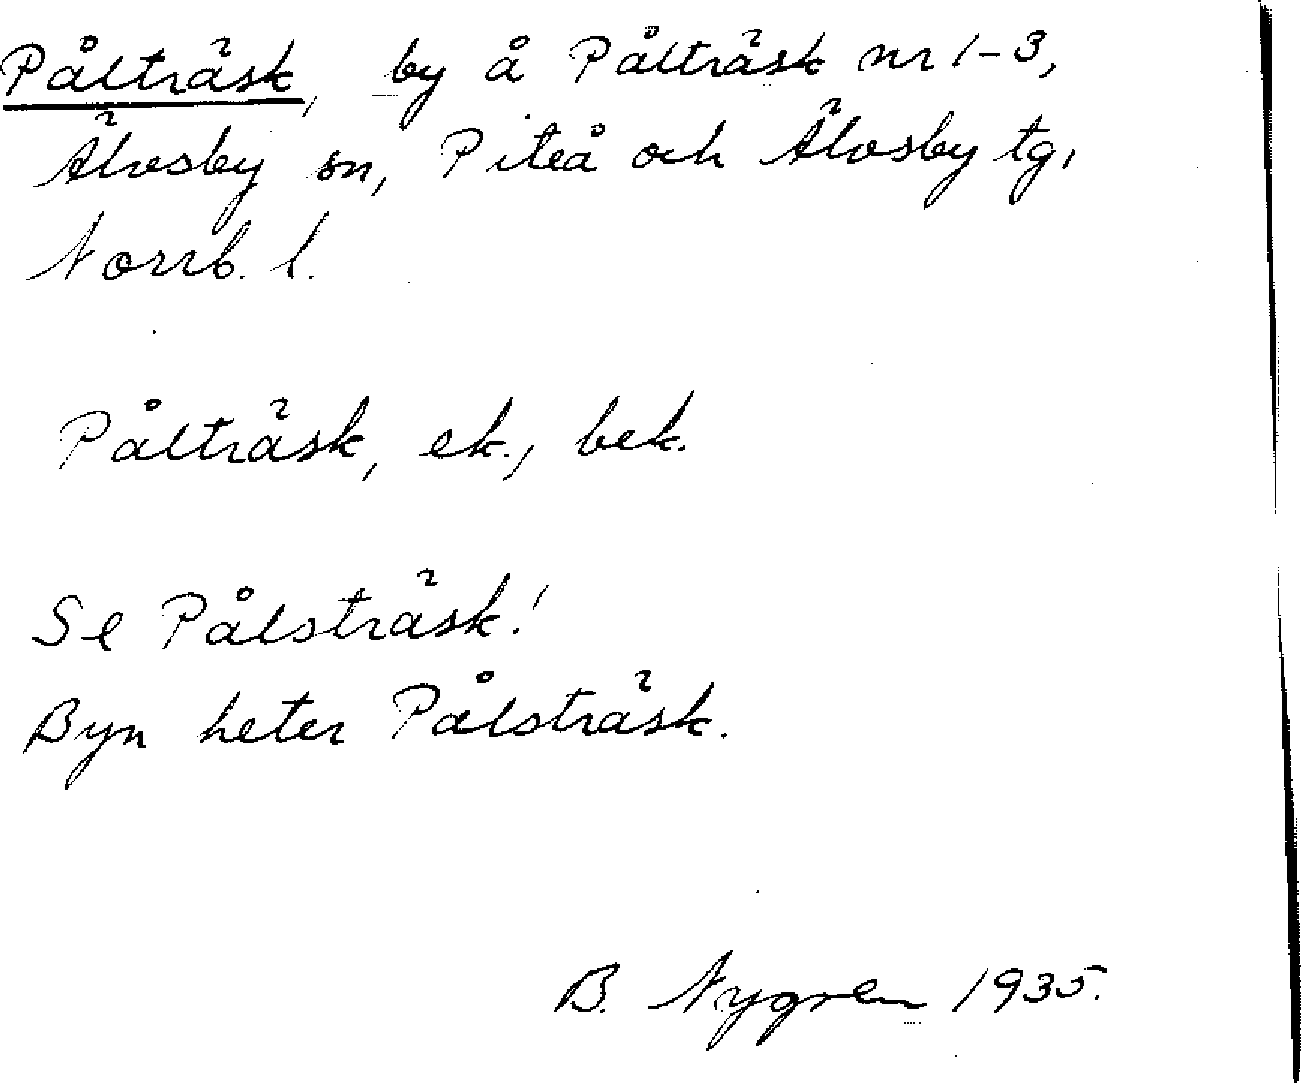 Pålträsk, by å Pålträsk nr 1-3,
Älvsby sn, Piteå och Älvsby tg,
Norrb. l.
Pålträsk, ek., bek.
Se Pålsträsk!
Byn heter Pålsträsk.
B. Nygren 1935.